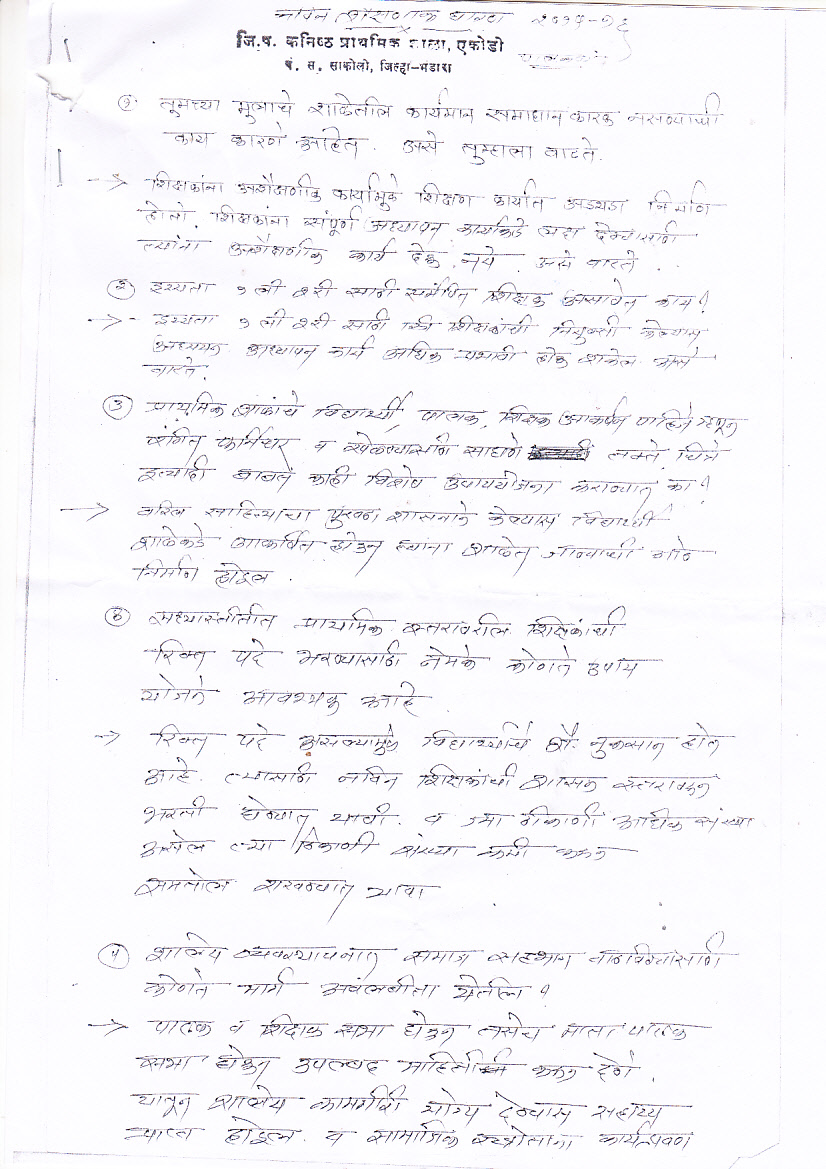 नविन शैक्षणिक धोरण २०१५-१६
जि.प. कनिष्ठ प्राथमिक शाळा, एकोडी
पं. स. साकोली, जिल्हा-भंडारा
१ तुमच्या मुलाचे शाळेतील कार्यमान समाधान कारक नसण्याची
काय कारणे आहेत. असे तुम्हाला वाटते.
→ शिक्षकांना अशैक्षणीक कार्यामुळे शिक्षण कार्यात अडथडा निर्माण
होतो. शिक्षकांना संपूर्ण अध्यापन कार्याकडे लक्ष देण्यासाठी
त्यांना अशैक्षणीक कार्य देऊ नये. असे वाटते.
२ इय्यता १ली २री साठी संबंधित शिक्षक असावेत काय?
→ इय्यता १ली २री साठी शिक्षकांची नियुक्ती केल्यास
अध्ययन अध्यापन कार्य अधिक प्रभावी होऊ शकेल असे
वाटते.
३ प्राथमिक शाळांचे विद्यार्थी, पालक, शिक्षक आकर्षन पाहिजे म्हणून
रंगित फर्निचर व खेळण्यासाठी साधणे तक्ते, चित्रे
इत्यादी बाबत काही विशेष उपाययोजना कराव्यात का?
→ वरिल साहित्याचा पुरवठा शासनाने केल्यास विद्यार्थी
शाळेकडे आकर्षित होऊन त्यांना शाळेत जाण्याची गोडी
निर्माण होईल.
४ सध्यास्तीतीत प्राथमिक स्तरावरील शिक्षकांची
रिक्त पदे भरण्यासाठी नेमके कोणते उपाय
योजने आवश्यक आहे
→ रिक्त पदे असल्यामुळे विद्यार्थ्यांचे शै. नुकसान होत
आहे. त्यासाठी नविन शिक्षकांची शासक स्तरावरून
भरती घेण्यात यावी. व ज्या ठीकाणी अधीक संख्या
असेल त्या ठिकाणी संख्या कमी करून
समतोल राखण्यात यावा
५ शालेय व्यवस्थापनात समाज सहभाग वाढविण्यासाठी
कोणते मार्ग अवलंबीता येतील?
→ पालक व शिक्षक सभा घेऊन तसेच माता पालक
सभा घेऊन उपलब्द माहिती करून देणे.
यातून शालेय कामगीरी योग्य देण्यास सहाय्य
प्राप्त होईल. व सामाजिक स्त्रोताना कार्यप्रवण